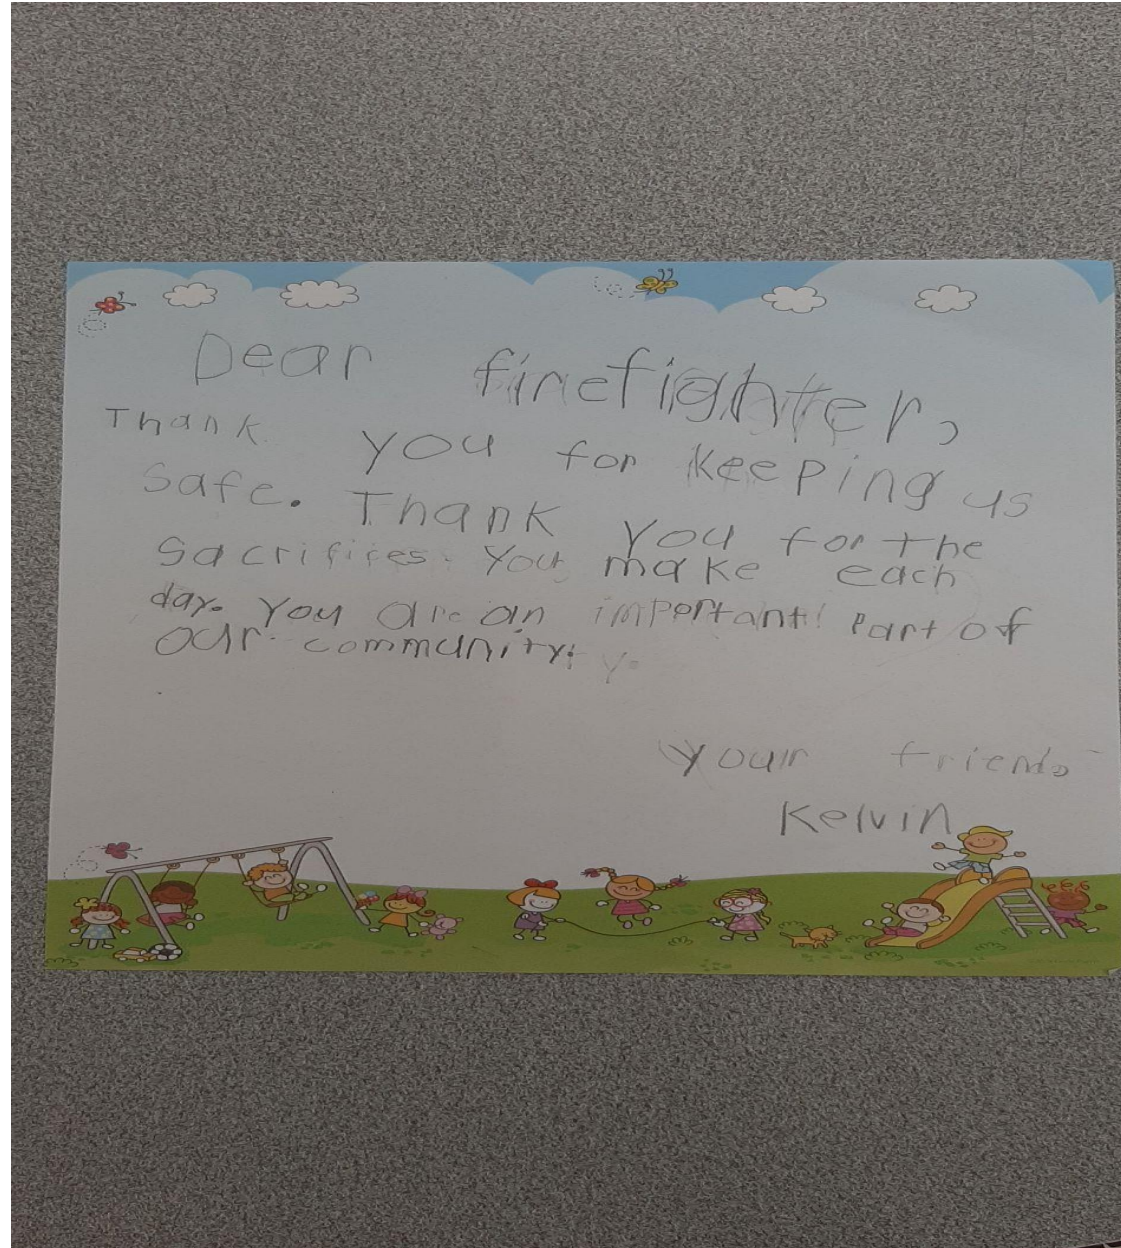 Dear firefighter,
Thank you for keeping us
safe. Thank you for the
sacrifices you make each
day. You are an important part of
our community.
Your friend,
Kelvin